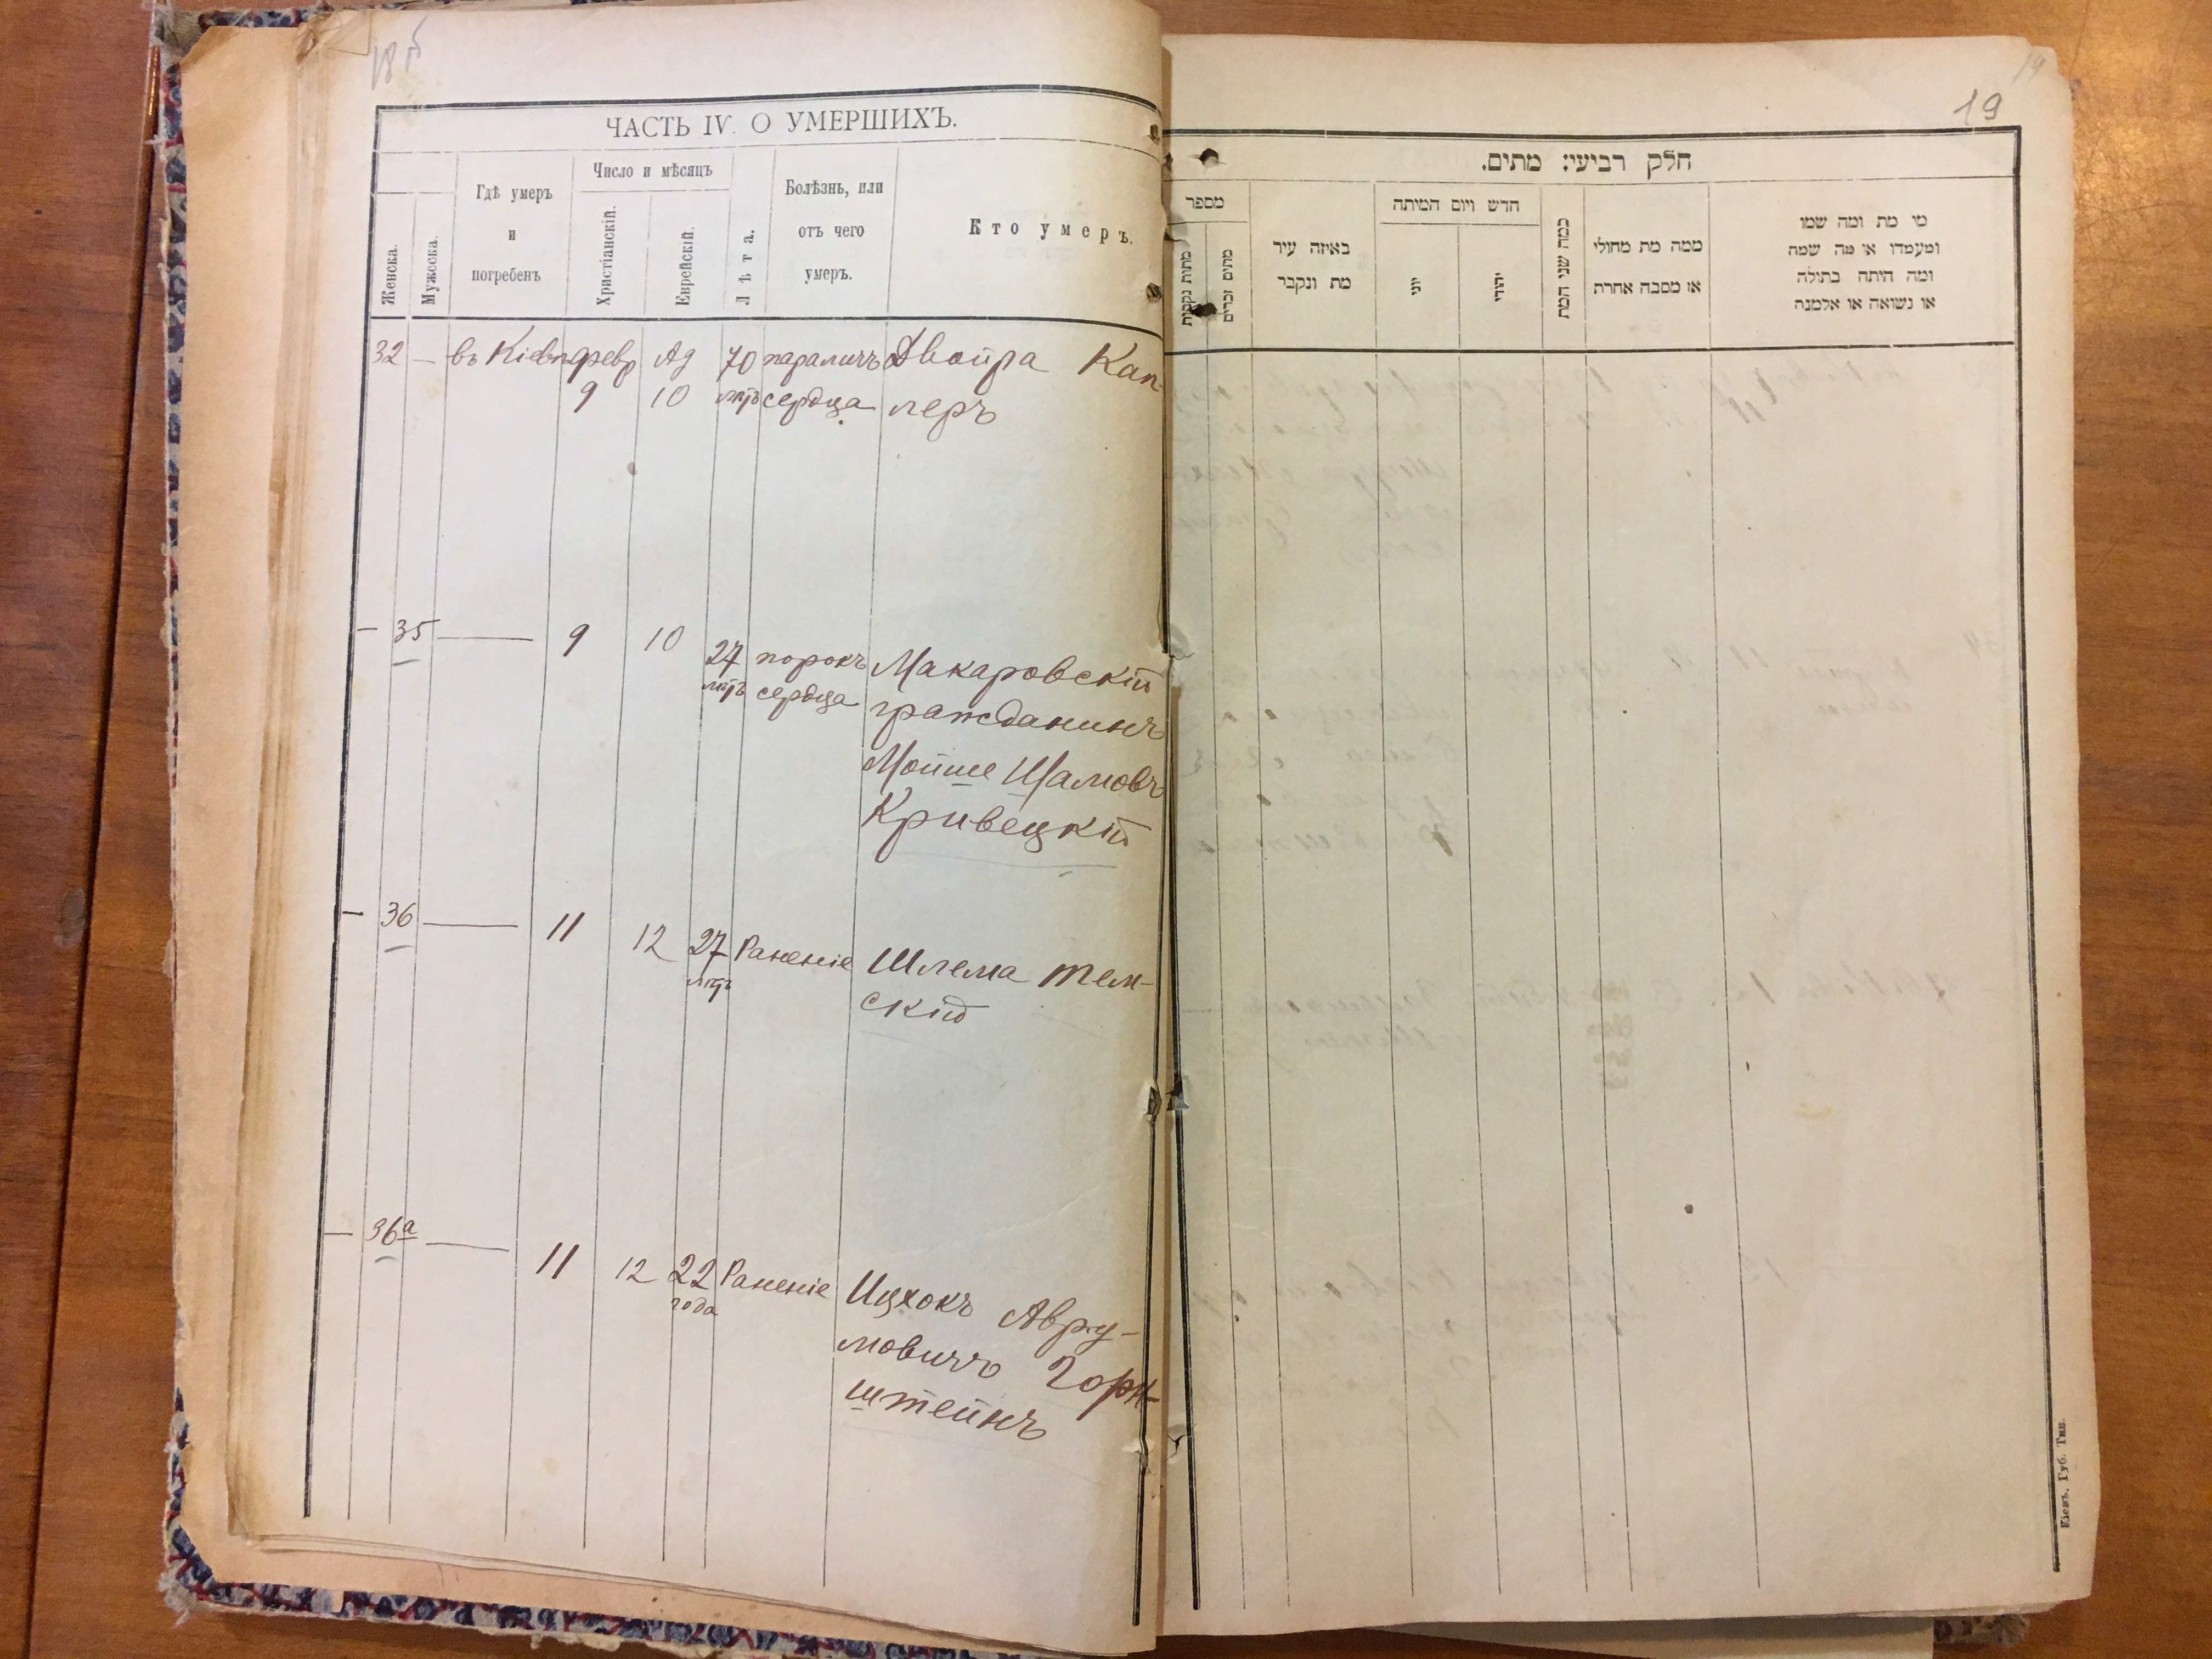 18б
ЧАСТЬ IV. О УМЕРШИХЪ.
Женска.
Мужеска.
Гдѣ умеръ
и
погребенъ
Число и мѣсяцъ
Христіанскій.
Еврейскій.
Лѣта.
Болѣзнь, или
отъ чего
умеръ.
Кто умеръ.
32 — въ Кіевѣ февр Ад 70 параличъ Двойра Кап-
9 10 лѣтъ сердца леръ
— 35 — 9 10 27 порокъ Макаровскій
лѣтъ сердца гражданинъ
Мойше Шамовъ
Кривецкій
— 36 — 11 12 27 Раненіе Шлема Тем-
лѣтъ скій
— 36а — 11 12 22 Раненіе Ицхокъ Авру-
года мовичъ Горн-
штейнъ
19
חלק רביעי: מתים.
מספר
מתות נקבות
מתים זכרים
באיזה עיר
מת ונקבר
חדש ויום המיתה
יוני
יהודי
כמה שני המת
ממה מת מחולי
או מסבה אחרת
מי מת ומה שמו
ומעמדו או מה שמה
ומה היתה בתולה
או נשואה או אלמנה
Кіевъ. Губ. Тип.